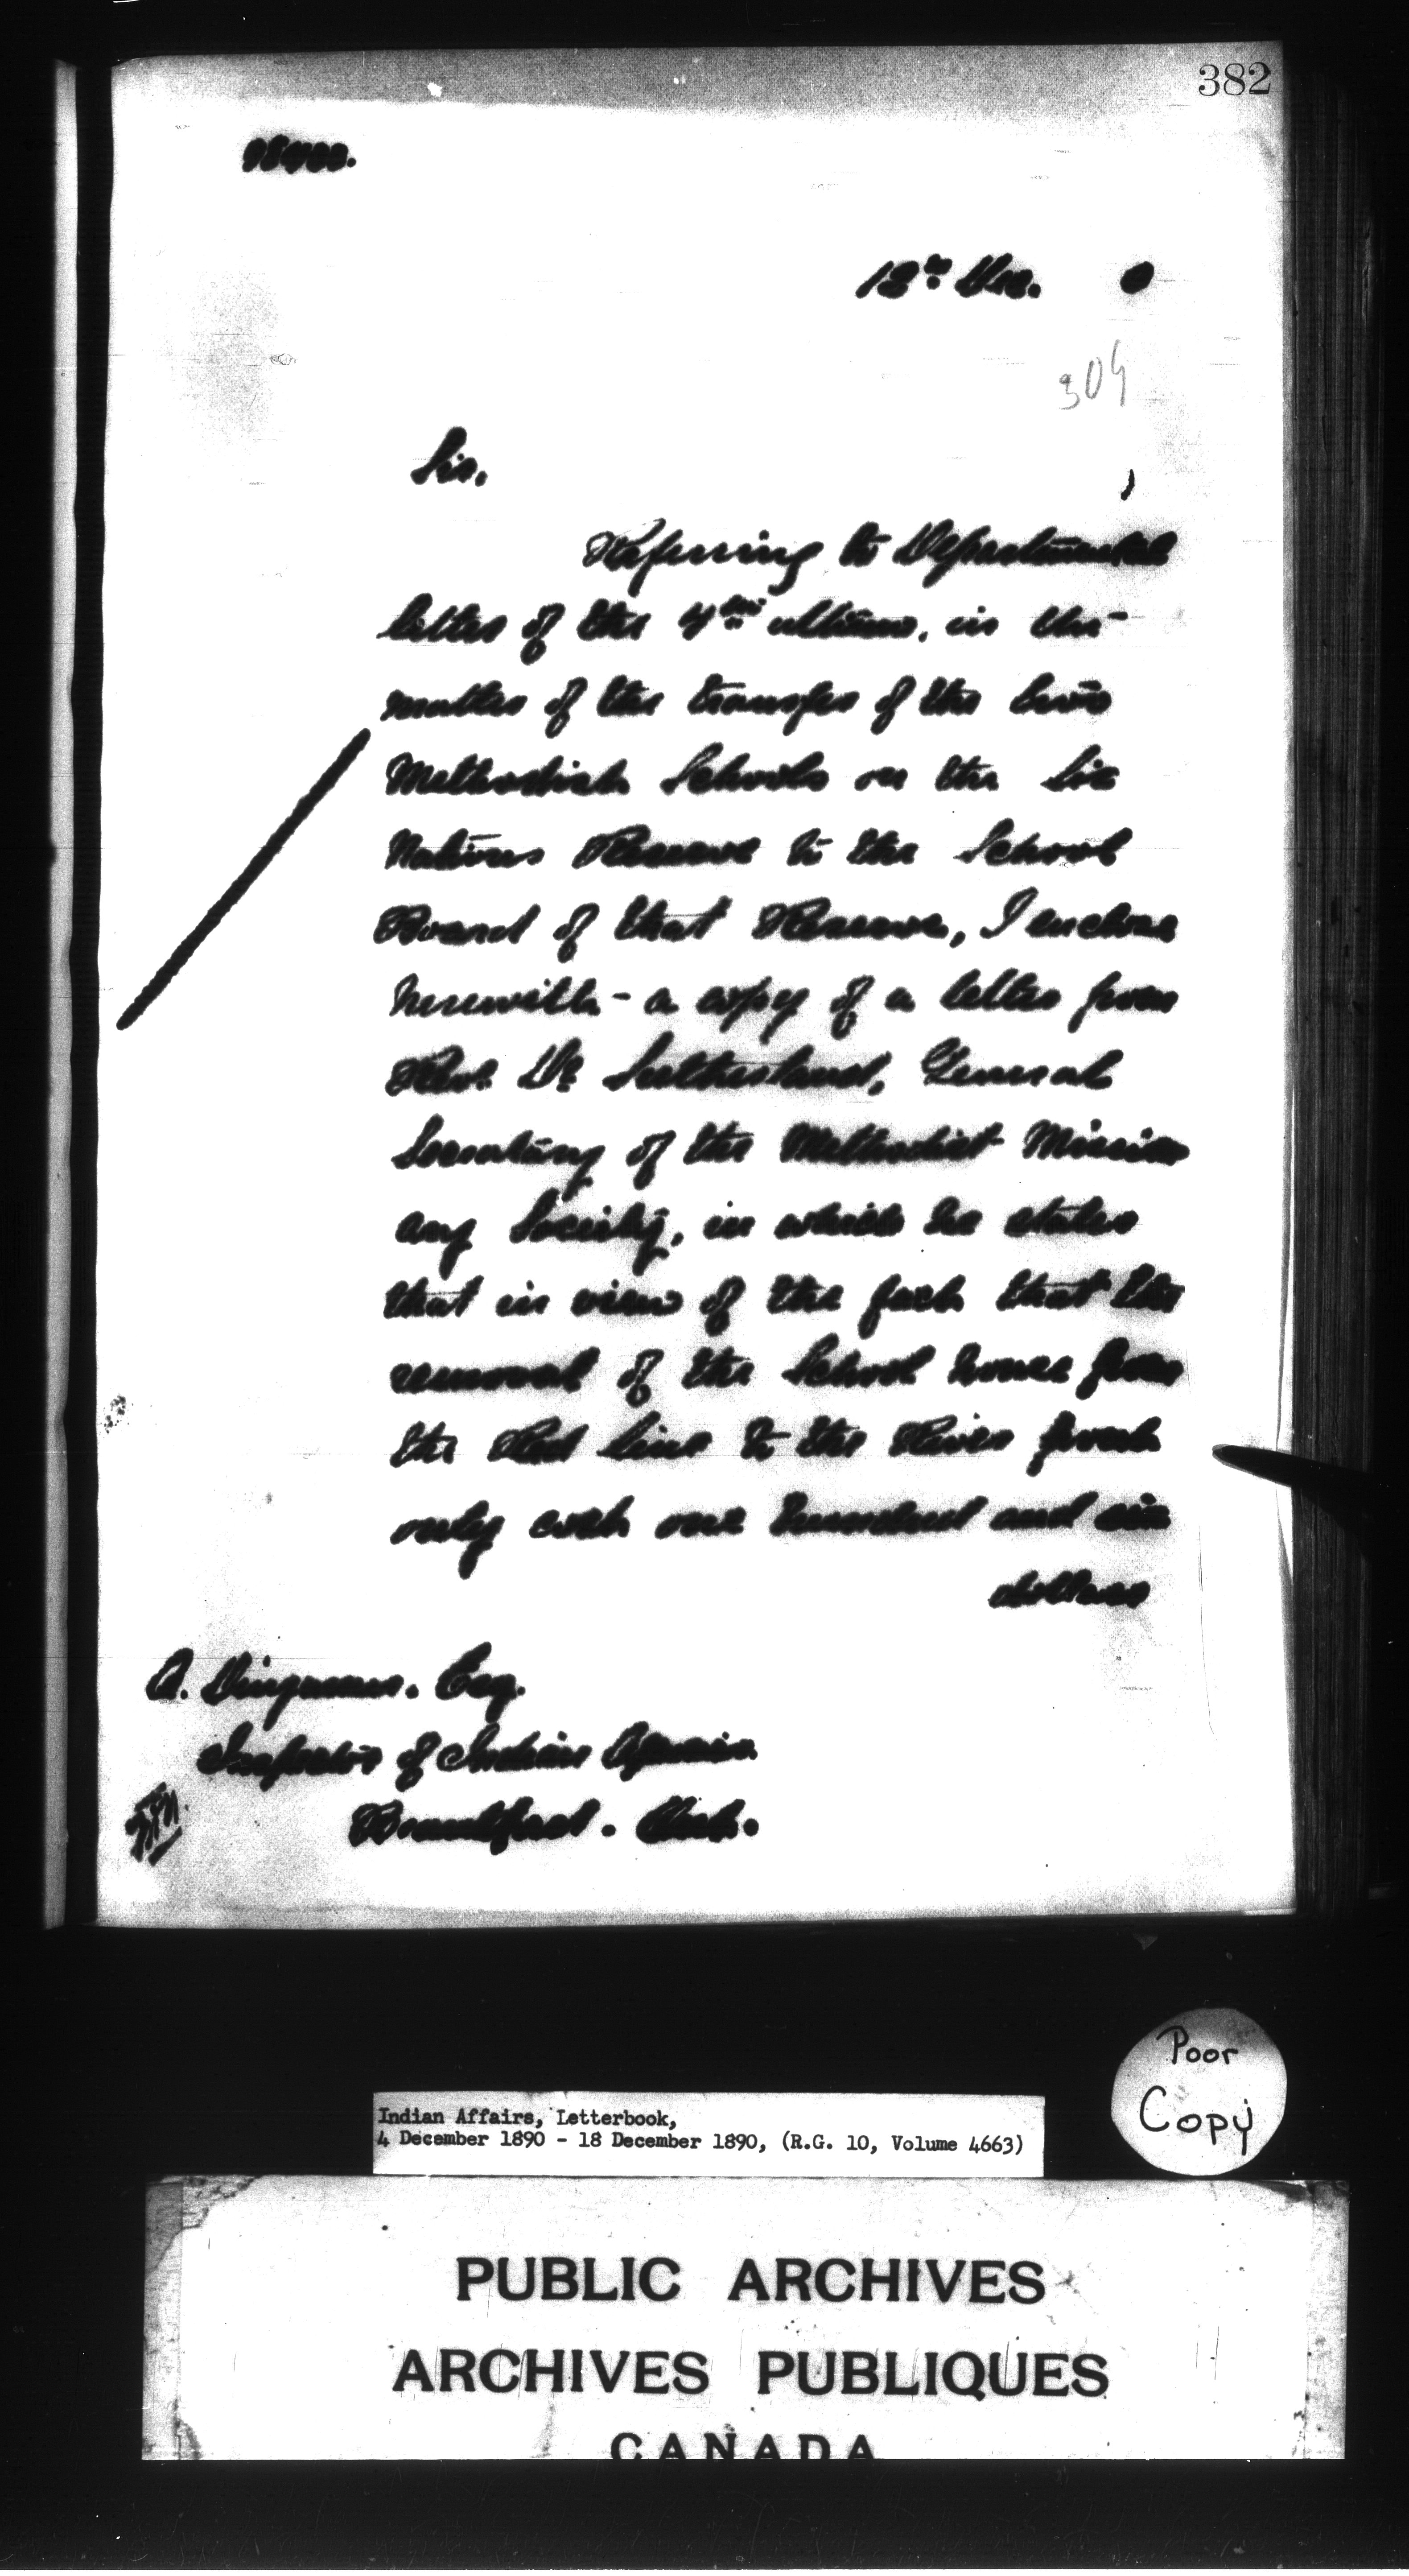 382
12th Dec. 0
304
Sir,
Referring to Departmental
letter of the 4th ultimo, in the
matter of the transfer of the two
Methodist Schools on the Six
Nations Reserve to the School
Board of that Reserve, I enclose
herewith a copy of a letter from
Revd. Dr. Sutherland, General
Secretary of the Methodist Mission
ary Society, in which he states
that in view of the fact that the
removal of the School house from
the Red Line to the River front
only cost one hundred and six
dollars
A. Dingman, Esq.
Inspector of Indian Agencies
Brantford. Ont.
Poor
Copy
Indian Affairs, Letterbook,
4 December 1890 - 18 December 1890, (R.G. 10, Volume 4663)
PUBLIC ARCHIVES
ARCHIVES PUBLIQUES
CANADA